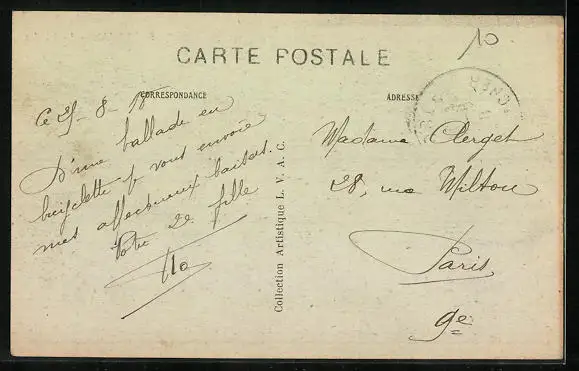 10
CARTE POSTALE
CORRESPONDANCE
ADRESSE
Ce 25-8-18
D'une ballade en
bicyclette je vous envoie
mes affectueux baisers.
Votre 2e fille
Collection Artistique L. V. A. C.
Madame Clerget
28, rue Milton
Paris
9e